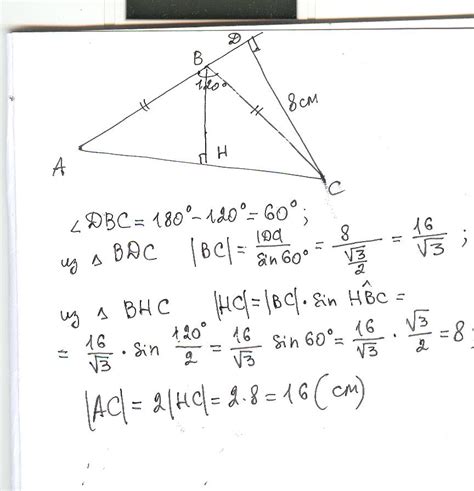 B
D
120°
8 см
A
H
C
∠DBC = 180° - 120° = 60° ;
из △ BDC |BC| = |DC| / sin 60° = 8 / (√3/2) = 16/√3 ;
из △ BHC |HC| = |BC| · sin HB̂C =
= 16/√3 · sin 120°/2 = 16/√3 sin 60° = 16/√3 · √3/2 = 8 ;
|AC| = 2|HC| = 2·8 = 16 (см)